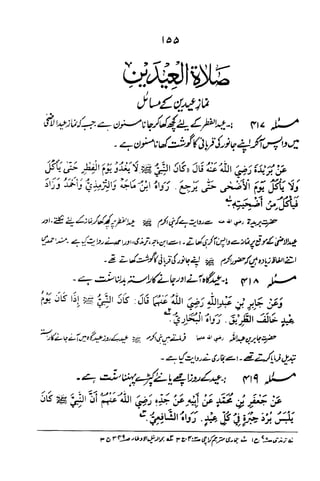 ۱۵۵
صَلَاةُ الْعِيدَيْنِ
نماز عیدین کے مسائل
مسئلہ ۴۱۷ :- عید الفطر کے لئے کچھ کھا کر جانا مسنون ہے جب کہ نماز عید الاضحیٰ
میں واپس آکر اپنے جانور کی قربانی کا گوشت کھانا مسنون ہے ۔
عَنْ بُرَيْدَةَ رَضِيَ اللهُ عَنْهُ قَالَ : كَانَ النَّبِيُّ ﷺ لَا يَغْدُو يَوْمَ الْفِطْرِ حَتَّى يَأْكُلَ
وَلَا يَأْكُلُ يَوْمَ الْأَضْحَى حَتَّى يَرْجِعَ . رَوَاهُ ابْنُ مَاجَةَ وَالتِّرْمِذِيُّ وَأَحْمَدُ وَزَادَ
فَيَأْكُلَ مِنْ أُضْحِيَتِهِ
حضرت بریدہ رضی اللہ عنہ سے روایت ہے کہ نبی اکرم ﷺ عید الفطر پر کچھ کھا کر نماز کے لئے نکلتے ، اور
عید الاضحیٰ کے موقع پر نماز سے واپس آکر ہی کھاتے ۔ اسے ابن ماجہ ، ترمذی ، اور احمد نے روایت کیا ہے ، مسند احمد میں
اتنے الفاظ زیادہ ہیں کہ حضور اکرم ﷺ اپنے جانور کی قربانی کا گوشت کھاتے تھے ۔
مسئلہ ۴۱۸ :- عید گاہ آنے اور جانے کا راستہ بدلنا سنت ہے ۔
وَعَنْ جَابِرِ بْنِ عَبْدِاللهِ رَضِيَ اللهُ عَنْهُمَا قَالَ : كَانَ النَّبِيُّ ﷺ إِذَا كَانَ يَوْمُ
عِيدٍ خَالَفَ الطَّرِيقَ . رَوَاهُ الْبُخَارِيُّ
حضرت جابر بن عبداللہ رضی اللہ عنہما فرماتے ہیں نبی اکرم ﷺ عید کے روز عید گاہ میں آنے جانے کا راستہ
تبدیل فرمایا کرتے تھے ۔ اسے بخاری نے روایت کیا ہے ۔
مسئلہ ۴۱۹ :- عید کے روز اچھے یا نئے کپڑے پہننا سنت ہے ۔
عَنْ جَعْفَرِ بْنِ مُحَمَّدٍ عَنْ أَبِيهِ عَنْ جَدِّهِ رَضِيَ اللهُ عَنْهُمْ أَنَّ النَّبِيَّ ﷺ كَانَ
يَلْبَسُ بُرْدَ حِبَرَةٍ فِي كُلِّ عِيدٍ . رَوَاهُ الشَّافِعِيُّ